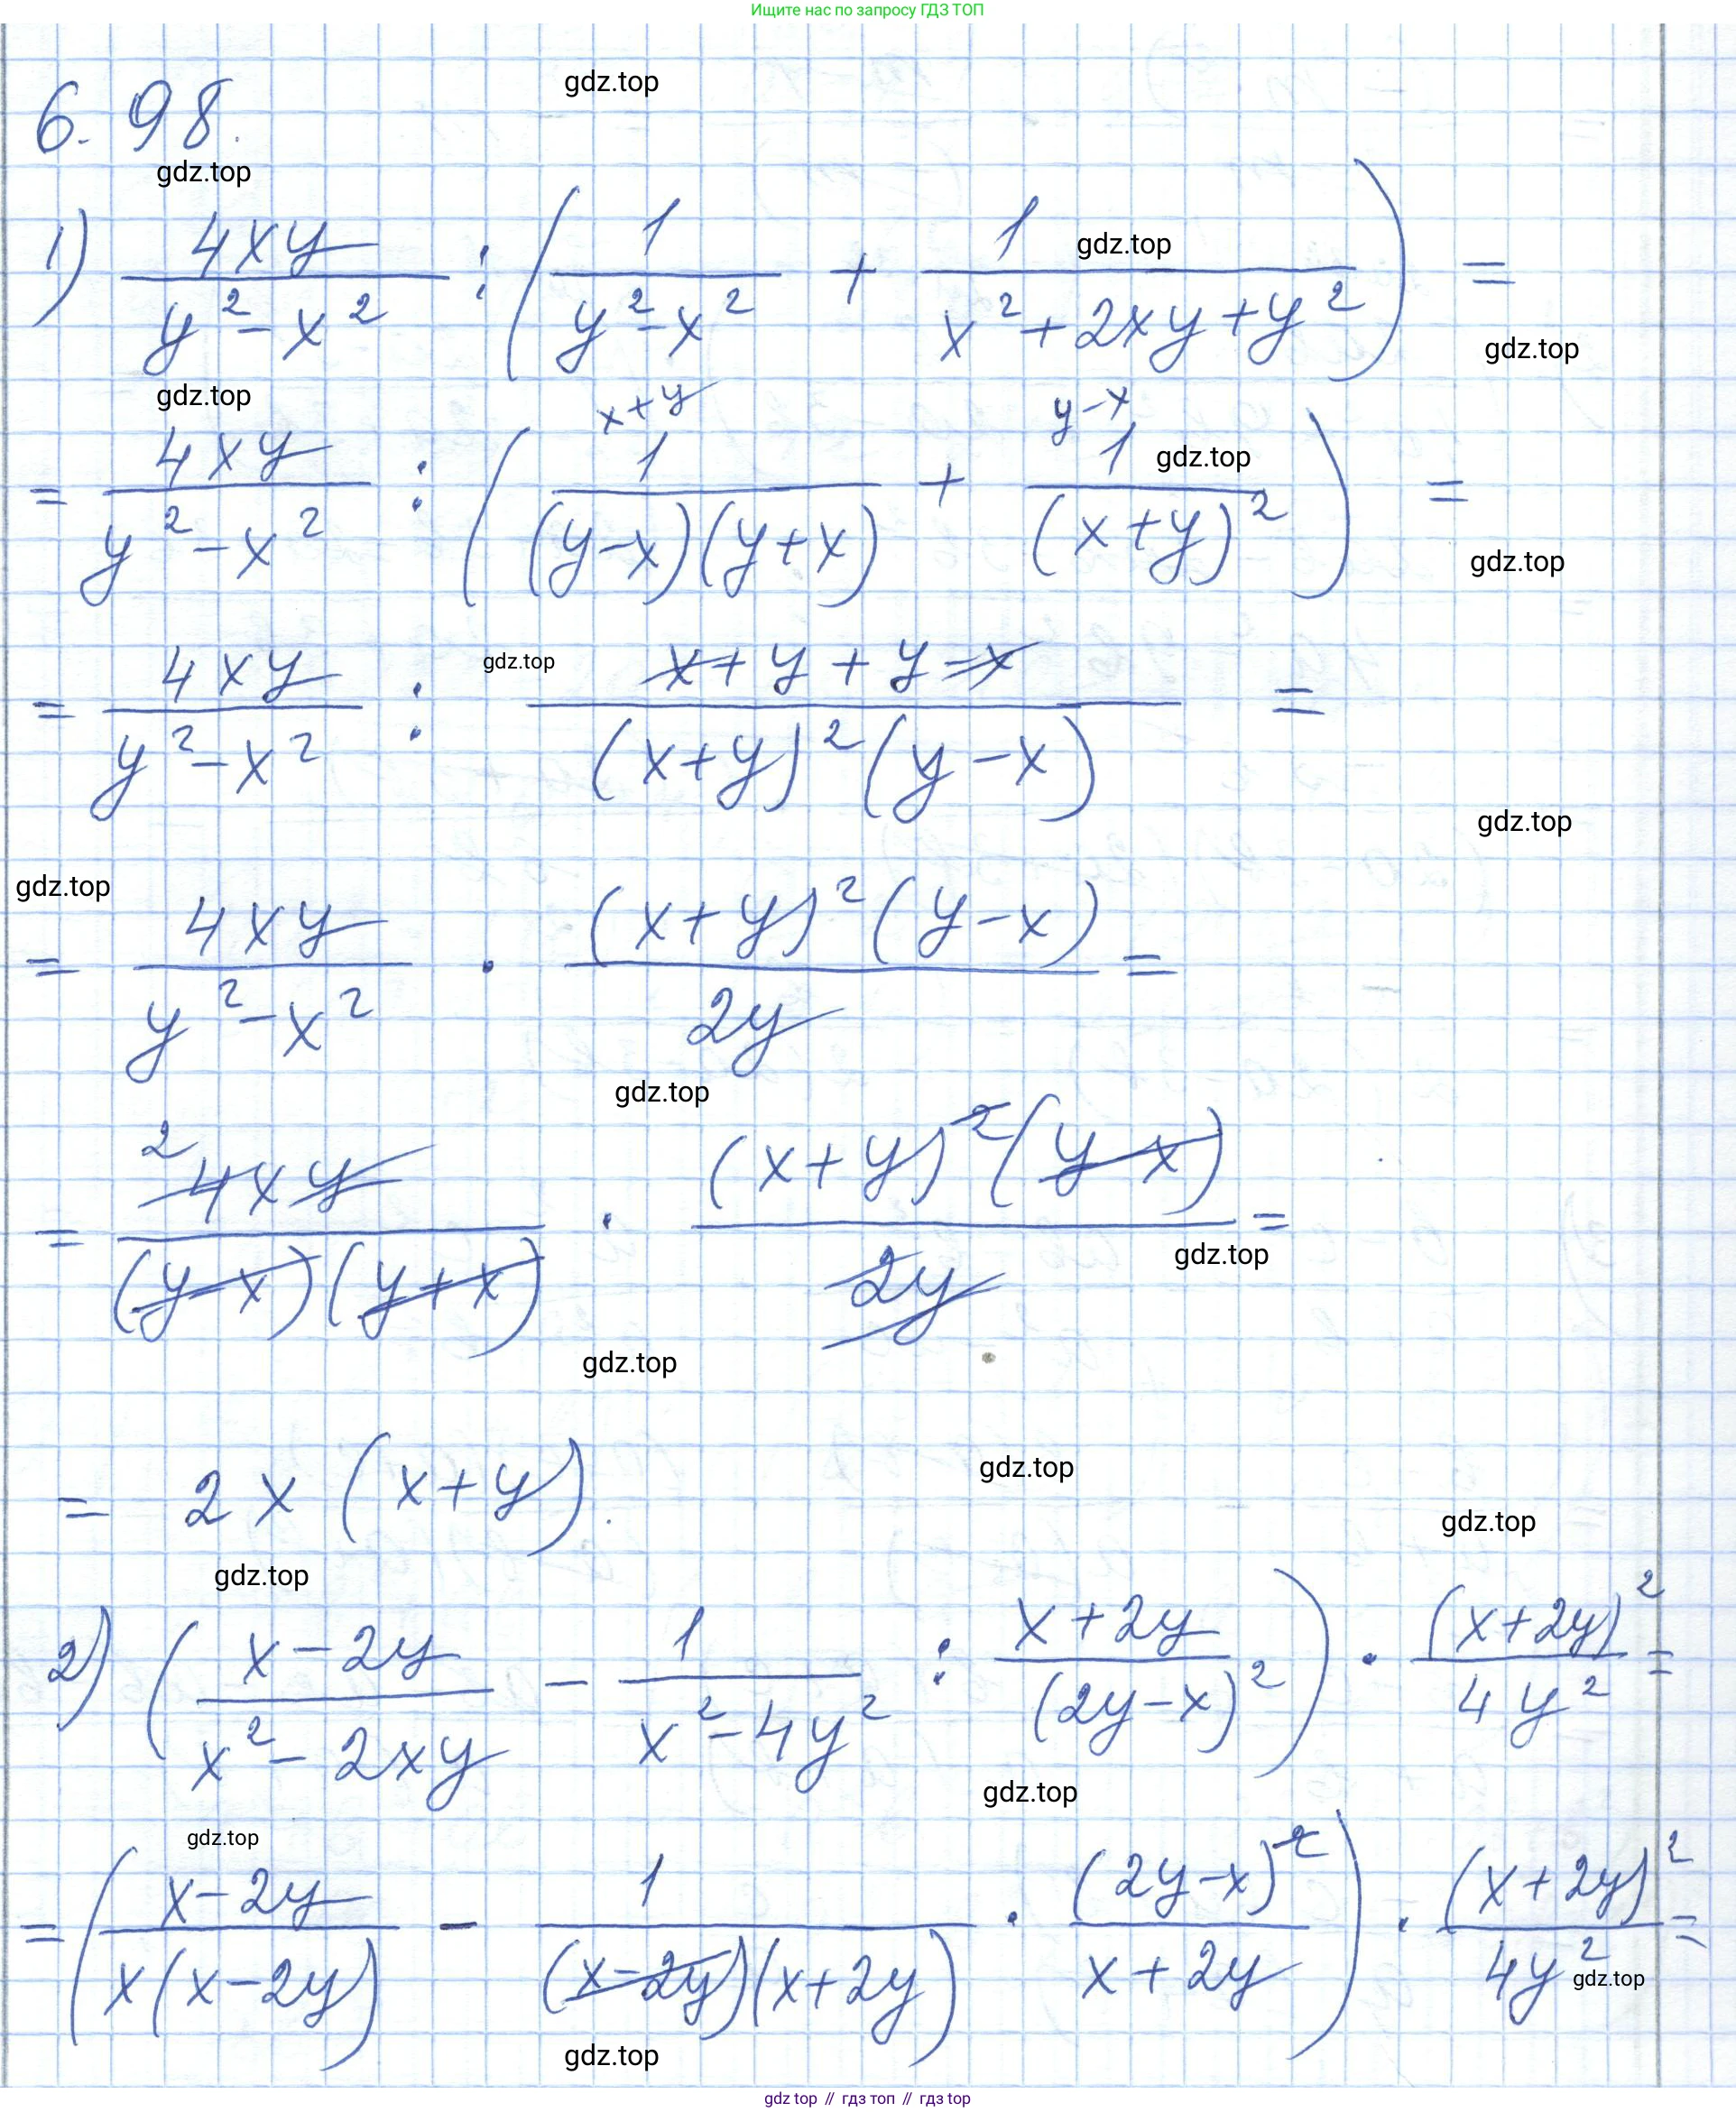 Ищите нас по запросу ГДЗ ТОП
gdz.top
6.98.
gdz.top
1) \frac{4xy}{y^2-x^2} : ( \frac{1}{y^2-x^2} + \frac{1}{x^2+2xy+y^2} ) =
gdz.top
gdz.top
gdz.top
x+y y-x
= \frac{4xy}{y^2-x^2} : ( \frac{1}{(y-x)(y+x)} + \frac{1}{(x+y)^2} ) =
gdz.top
gdz.top
= \frac{4xy}{y^2-x^2} : \frac{x+y+y-x}{(x+y)^2(y-x)} =
gdz.top
gdz.top
gdz.top
= \frac{4xy}{y^2-x^2} · \frac{(x+y)^2(y-x)}{2y} =
gdz.top
2
= \frac{4xy}{(y-x)(y+x)} · \frac{(x+y)^2(y-x)}{2y} =
gdz.top
gdz.top
= 2x(x+y).
gdz.top
gdz.top
gdz.top
2) ( \frac{x-2y}{x^2-2xy} - \frac{1}{x^2-4y^2} : \frac{x+2y}{(2y-x)^2} ) · \frac{(x+2y)^2}{4y^2} =
gdz.top
gdz.top
= ( \frac{x-2y}{x(x-2y)} - \frac{1}{(x-2y)(x+2y)} · \frac{(2y-x)^2}{x+2y} ) · \frac{(x+2y)^2}{4y^2} =
gdz.top
gdz.top
gdz top // гдз топ // гдз top